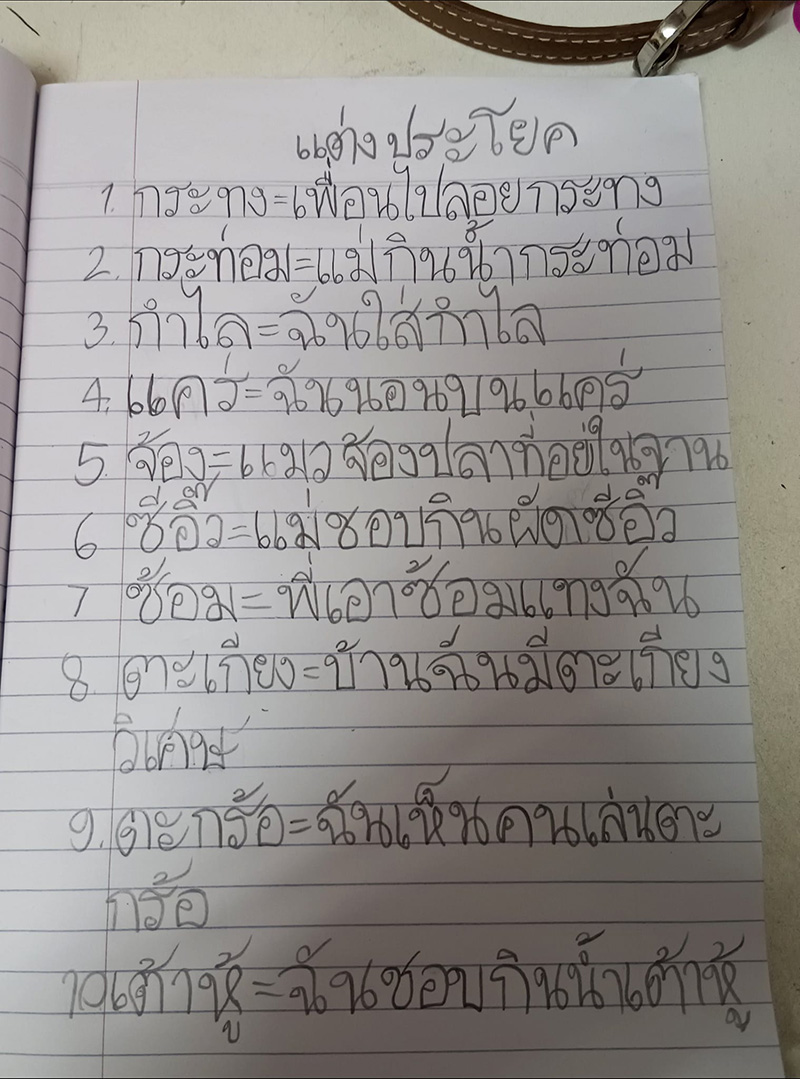 แต่งประโยค
1. กระทง=เพื่อนไปลอยกระทง
2. กระท่อม=แม่กินน้ำกระท่อม
3. กำไล=ฉันใส่กำไล
4. แคร่=ฉันนอนบนแคร่
5. จ้อง=แมวจ้องปลาที่อยู่ในจาน
6 ซีอิ๊ว=แม่ชอบกินผัดซีอิ๊ว
7 ซ้อม=พี่เอาซ้อมแทงฉัน
8. ตะเกียง=บ้านฉันมีตะเกียง
วิเศษ
9. ตะกร้อ=ฉันเห็นคนเล่นตะ
กร้อ
10. เต้าหู้=ฉันชอบกินน้ำเต้าหู้